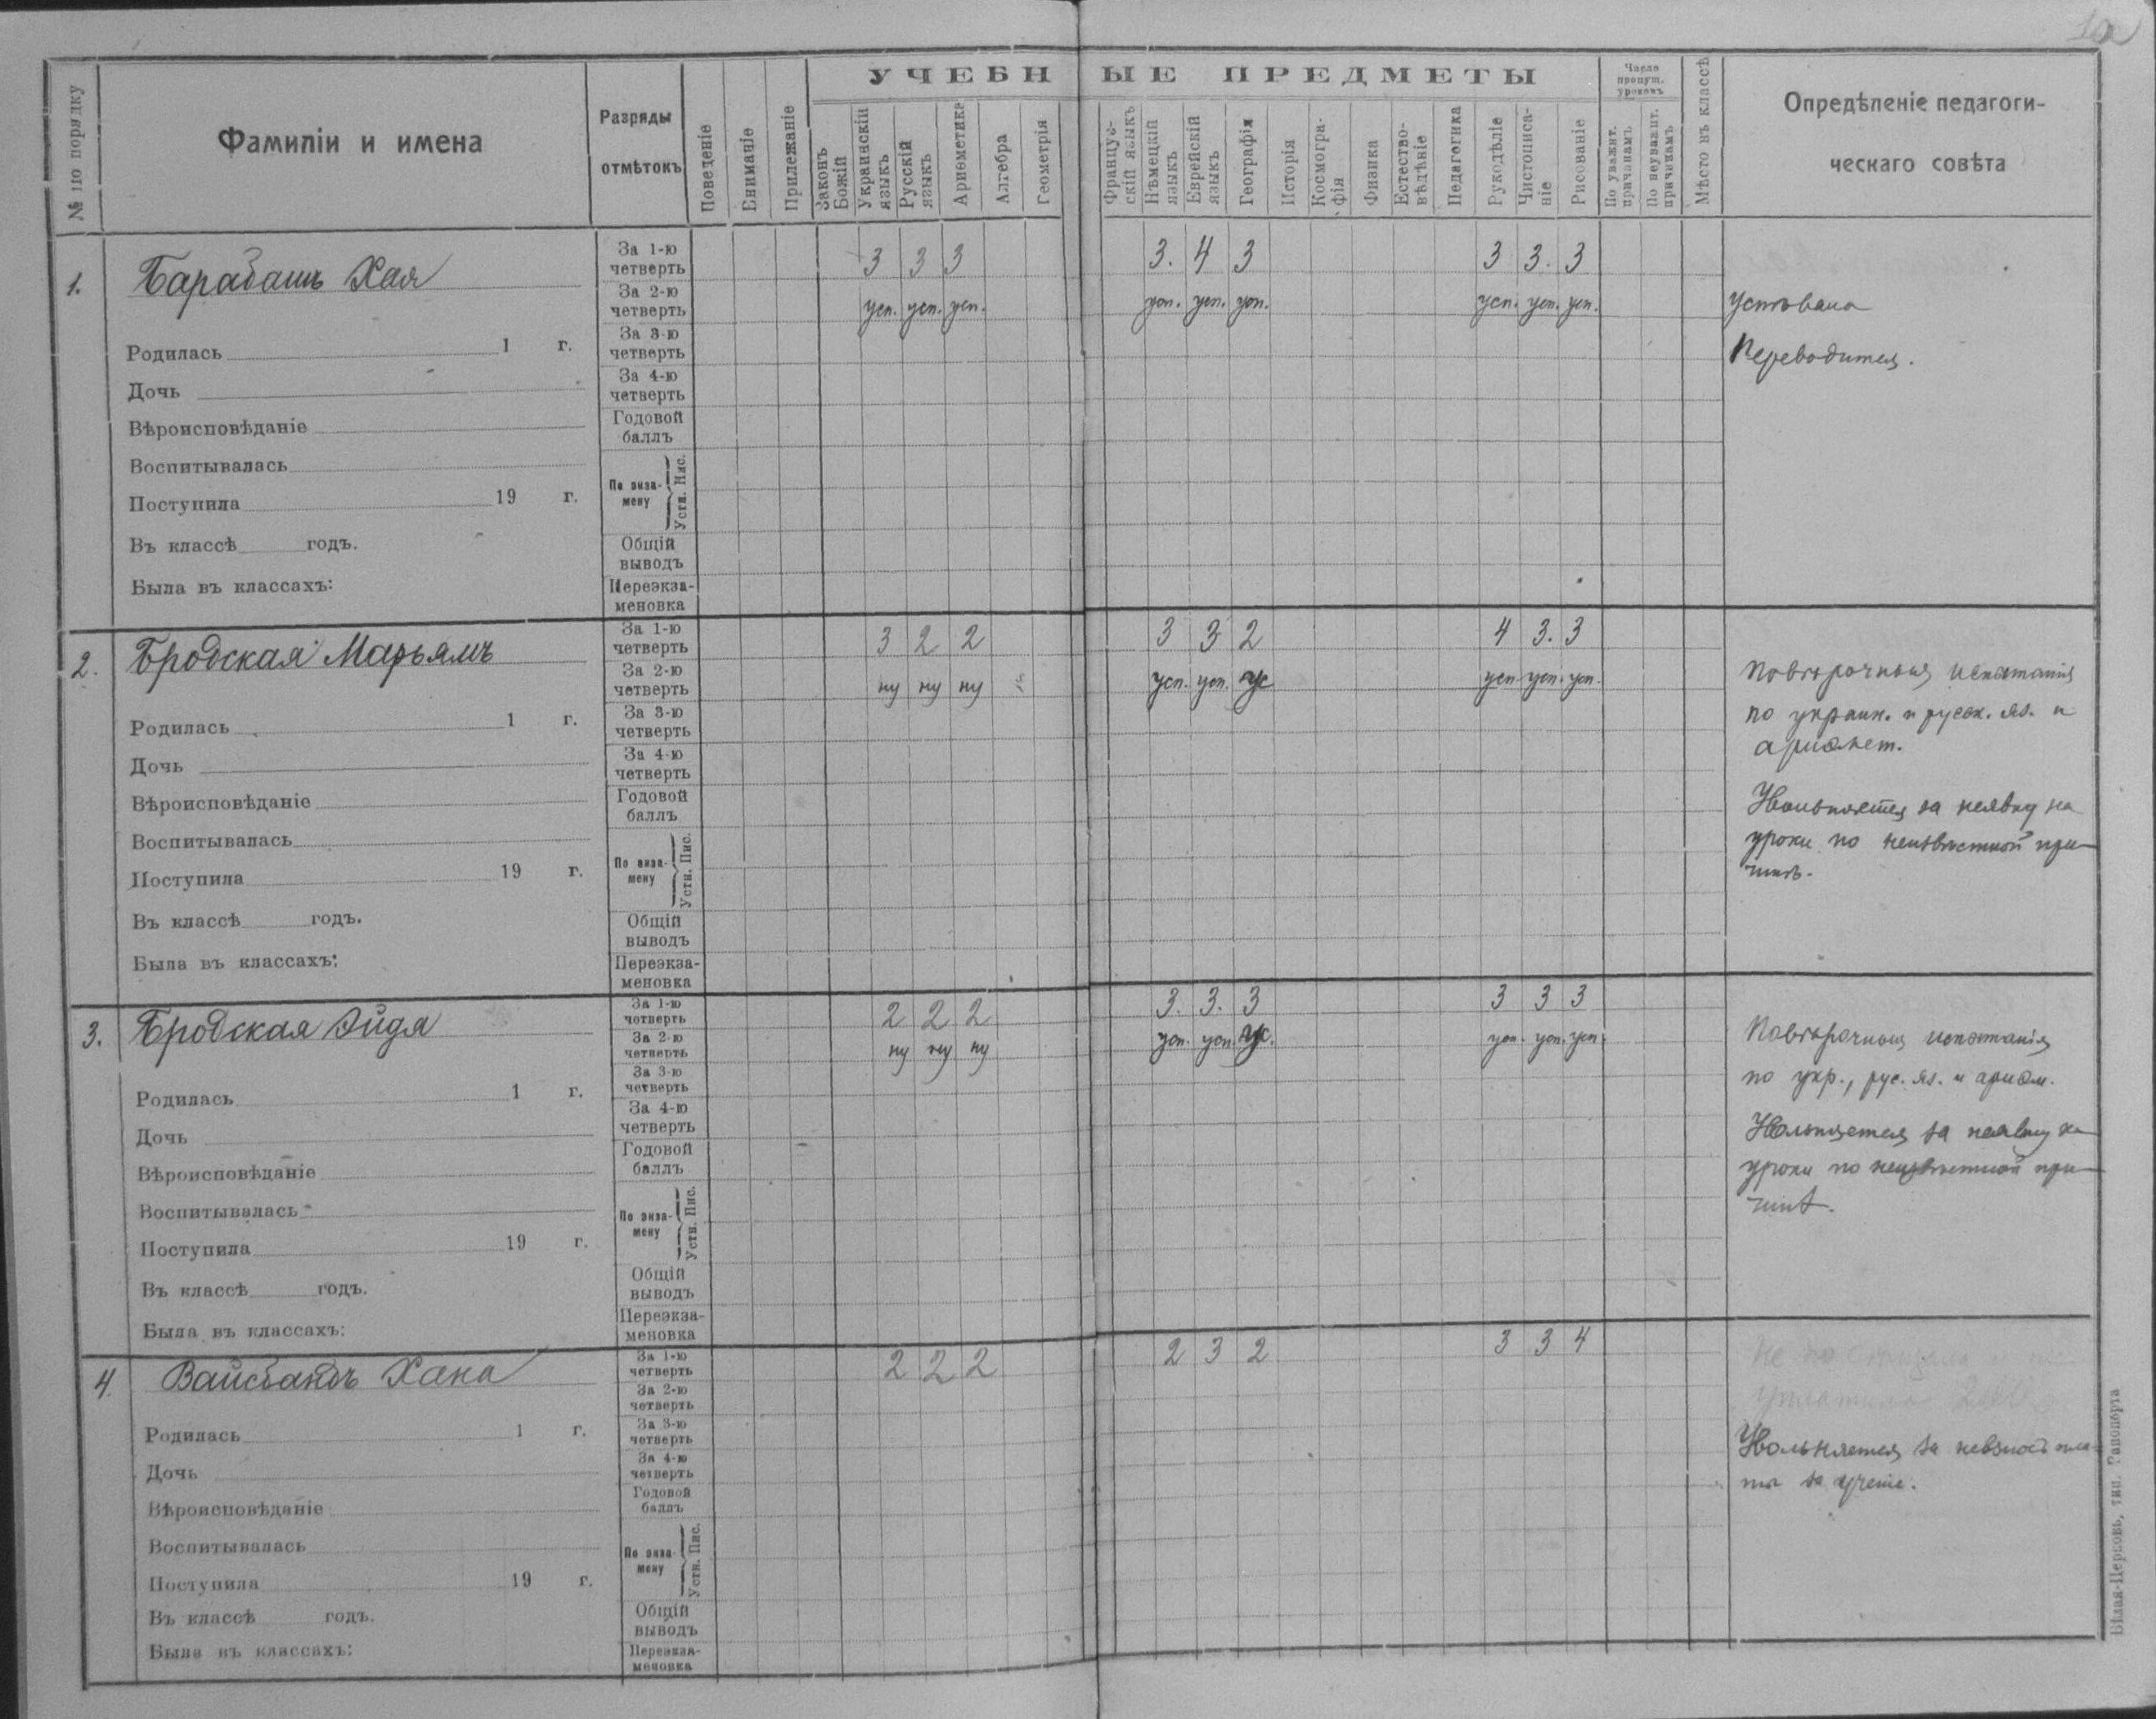 УЧЕБНЫЕ ПРЕДМЕТЫ
№ по порядку
Фамиліи и имена
Разряды отмѣтокъ
Поведеніе
Вниманіе
Прилежаніе
Законъ Божій
Украинскій языкъ
Русскій языкъ
Ариѳметика
Алгебра
Геометрія
Французскій языкъ
Нѣмецкій языкъ
Еврейскій языкъ
Географія
Исторія
Космографія
Физика
Естествовѣдѣніе
Педагогика
Рукодѣліе
Чистописаніе
Рисованіе
Число пропут. уроковъ
По уважит. причинамъ
По неуважит. причинамъ
Мѣсто въ классѣ
Опредѣленіе педагоги-
ческаго совѣта
1. Барабашъ Хая
Родилась 1 г.
Дочь
Вѣроисповѣданіе
Воспитывалась
Поступила 19 г.
Въ классѣ годъ.
Была въ классахъ:
За 1-ю четверть 3 3 3 3. 4 3 3 3. 3
За 2-ю четверть усп. усп. усп. усп. усп. усп. усп. усп. усп.
За 3-ю четверть
За 4-ю четверть
Годовой баллъ
По экзамену Устн. Пис.
Общій выводъ
Переэкзаменовка
Успѣвала
Переводится.
2. Бродская Марьямъ
Родилась 1 г.
Дочь
Вѣроисповѣданіе
Воспитывалась
Поступила 19 г.
Въ классѣ годъ.
Была въ классахъ:
За 1-ю четверть 3 2 2 3 3 2 4 3. 3
За 2-ю четверть ну ну ну усп. усп. ус усп усп. усп.
За 3-ю четверть
За 4-ю четверть
Годовой баллъ
По экзамену Устн. Пис.
Общій выводъ
Переэкзаменовка
Повѣрочныя испытанія
по украин. и русск. яз. и
ариѳмет.
Увольняется за неявку на
уроки по неизвѣстной при-
чинѣ.
3. Бродская Эйдя
Родилась 1 г.
Дочь
Вѣроисповѣданіе
Воспитывалась
Поступила 19 г.
Въ классѣ годъ.
Была въ классахъ:
За 1-ю четверть 2 2 2 3. 3. 3 3 3 3
За 2-ю четверть ну ну ну усп. усп. ус. усп. усп. усп.
За 3-ю четверть
За 4-ю четверть
Годовой баллъ
По экзамену Устн. Пис.
Общій выводъ
Переэкзаменовка
Повѣрочныя испытанія
по укр., рус. яз. и ариѳм.
Увольняется за неявку на
уроки по неизвѣстной при-
чинѣ.
4. Вайсбандъ Хана
Родилась 1 г.
Дочь
Вѣроисповѣданіе
Воспитывалась
Поступила 19 г.
Въ классѣ годъ.
Была въ классахъ:
За 1-ю четверть 2 2 2 2 3 2 3 3 4
За 2-ю четверть
За 3-ю четверть
За 4-ю четверть
Годовой баллъ
По экзамену Устн. Пис.
Общій выводъ
Переэкзаменовка
Увольняется за невзносъ пла-
ты за ученіе.
Бѣлая-Церковь, тип. Рапопорта